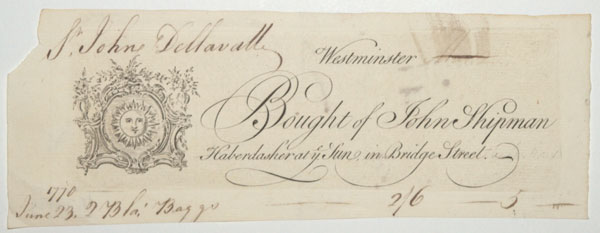 Sr. John Dellavall
Westminster
Bought of John Shipman
Haberdasher at ye. Sun in Bridge Street.
1770
June 23. 2 Bla: Baggs 2/6 5